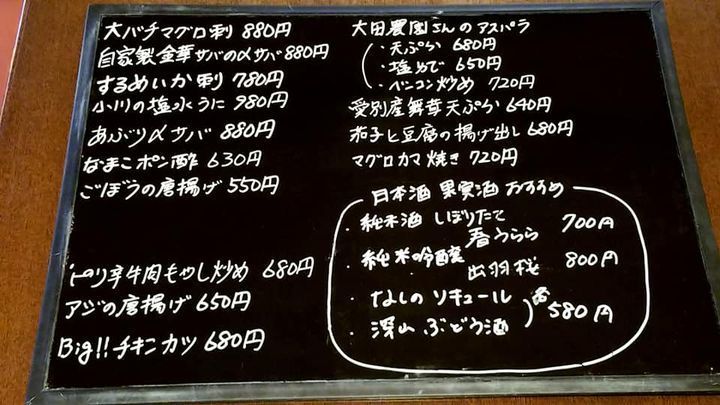 大バチマグロ刺 880円
自家製金華サバの〆サバ 880円
するめいか刺 780円
小川の塩水うに 980円
あぶり〆サバ 880円
なまこポン酢 630円
ごぼうの唐揚げ 550円
ピリ辛牛肉もやし炒め 680円
アジの唐揚げ 650円
Big!! チキンカツ 680円
大田農園さんのアスパラ
・天ぷら 680円
・塩ゆで 650円
・ベーコン炒め 720円
愛別産舞茸天ぷら 640円
茄子と豆腐の揚げ出し 680円
マグロカマ焼き 720円
日本酒 果実酒 おすすめ
・純米酒 しぼりたて
春うらら 700円
・純米吟醸
出羽桜 800円
・なしのリキュール
・深山ぶどう酒
各580円